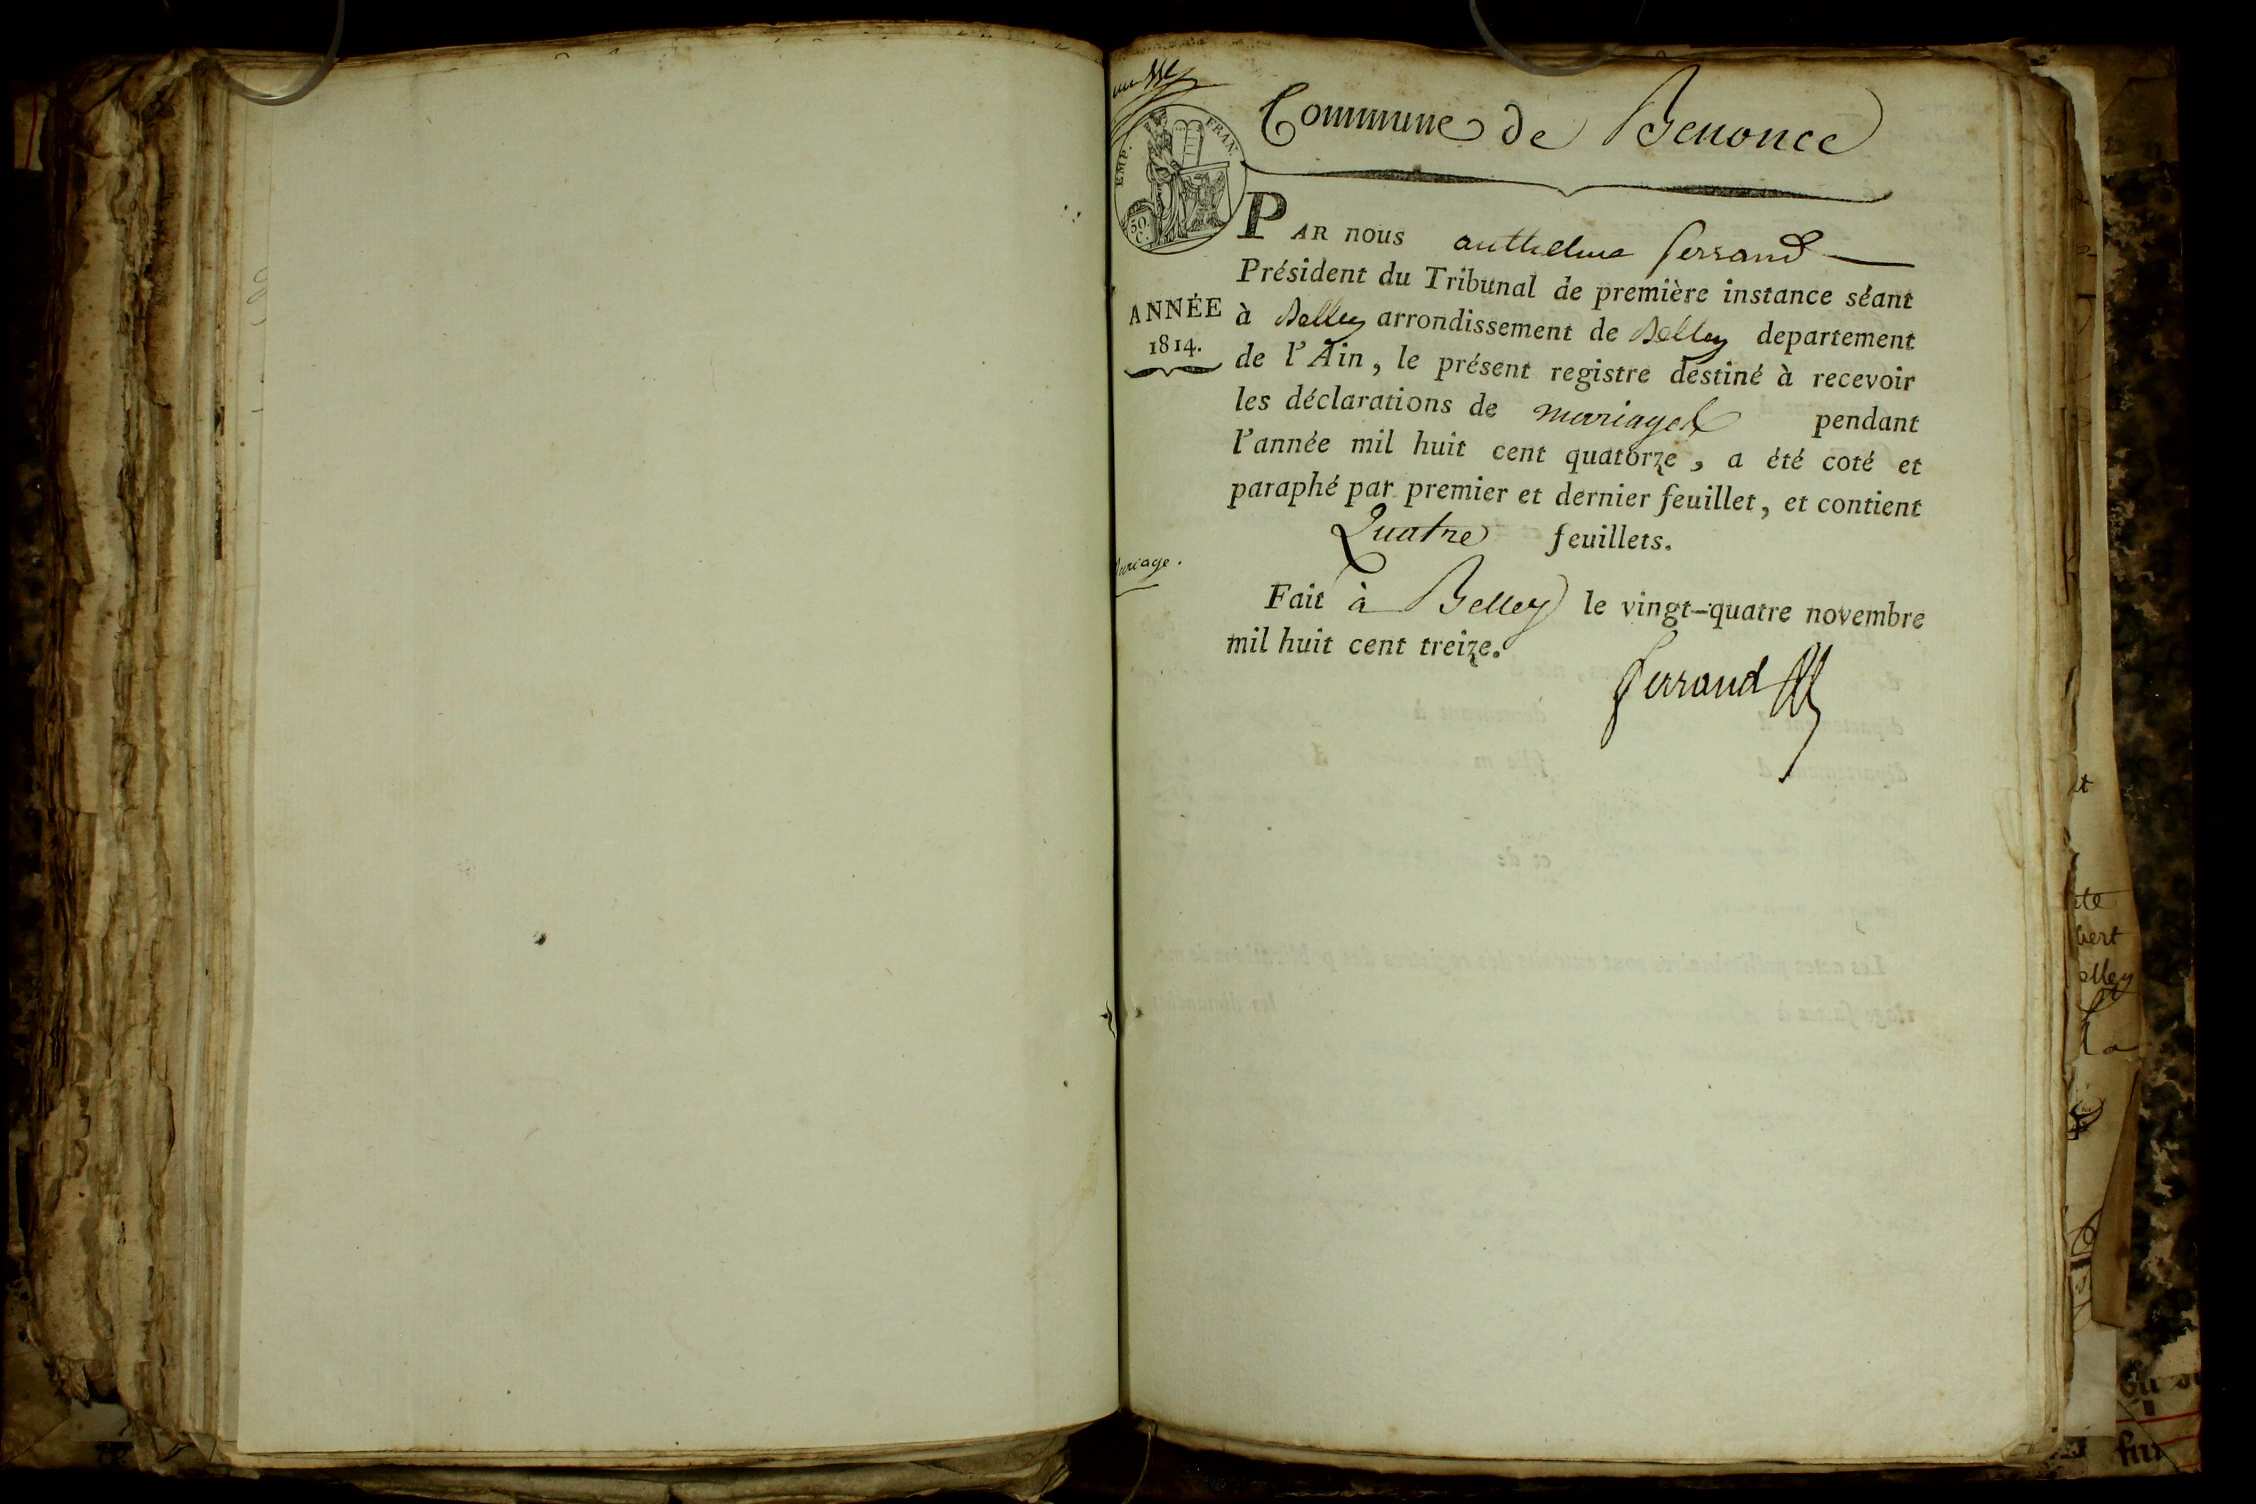 Commune de Benonce
EMP. FRAN.
50.
C.
PAR nous anthelme ferrand
Président du Tribunal de première instance séant
ANNÉE
1814.
à Belley arrondissement de Belley departement
de l'Ain, le présent registre destiné à recevoir
les déclarations de mariages pendant
l'année mil huit cent quatorze, a été coté et
paraphé par premier et dernier feuillet, et contient
Quatre feuillets.
Fait à Belley le vingt-quatre novembre
mil huit cent treize.
ferrand